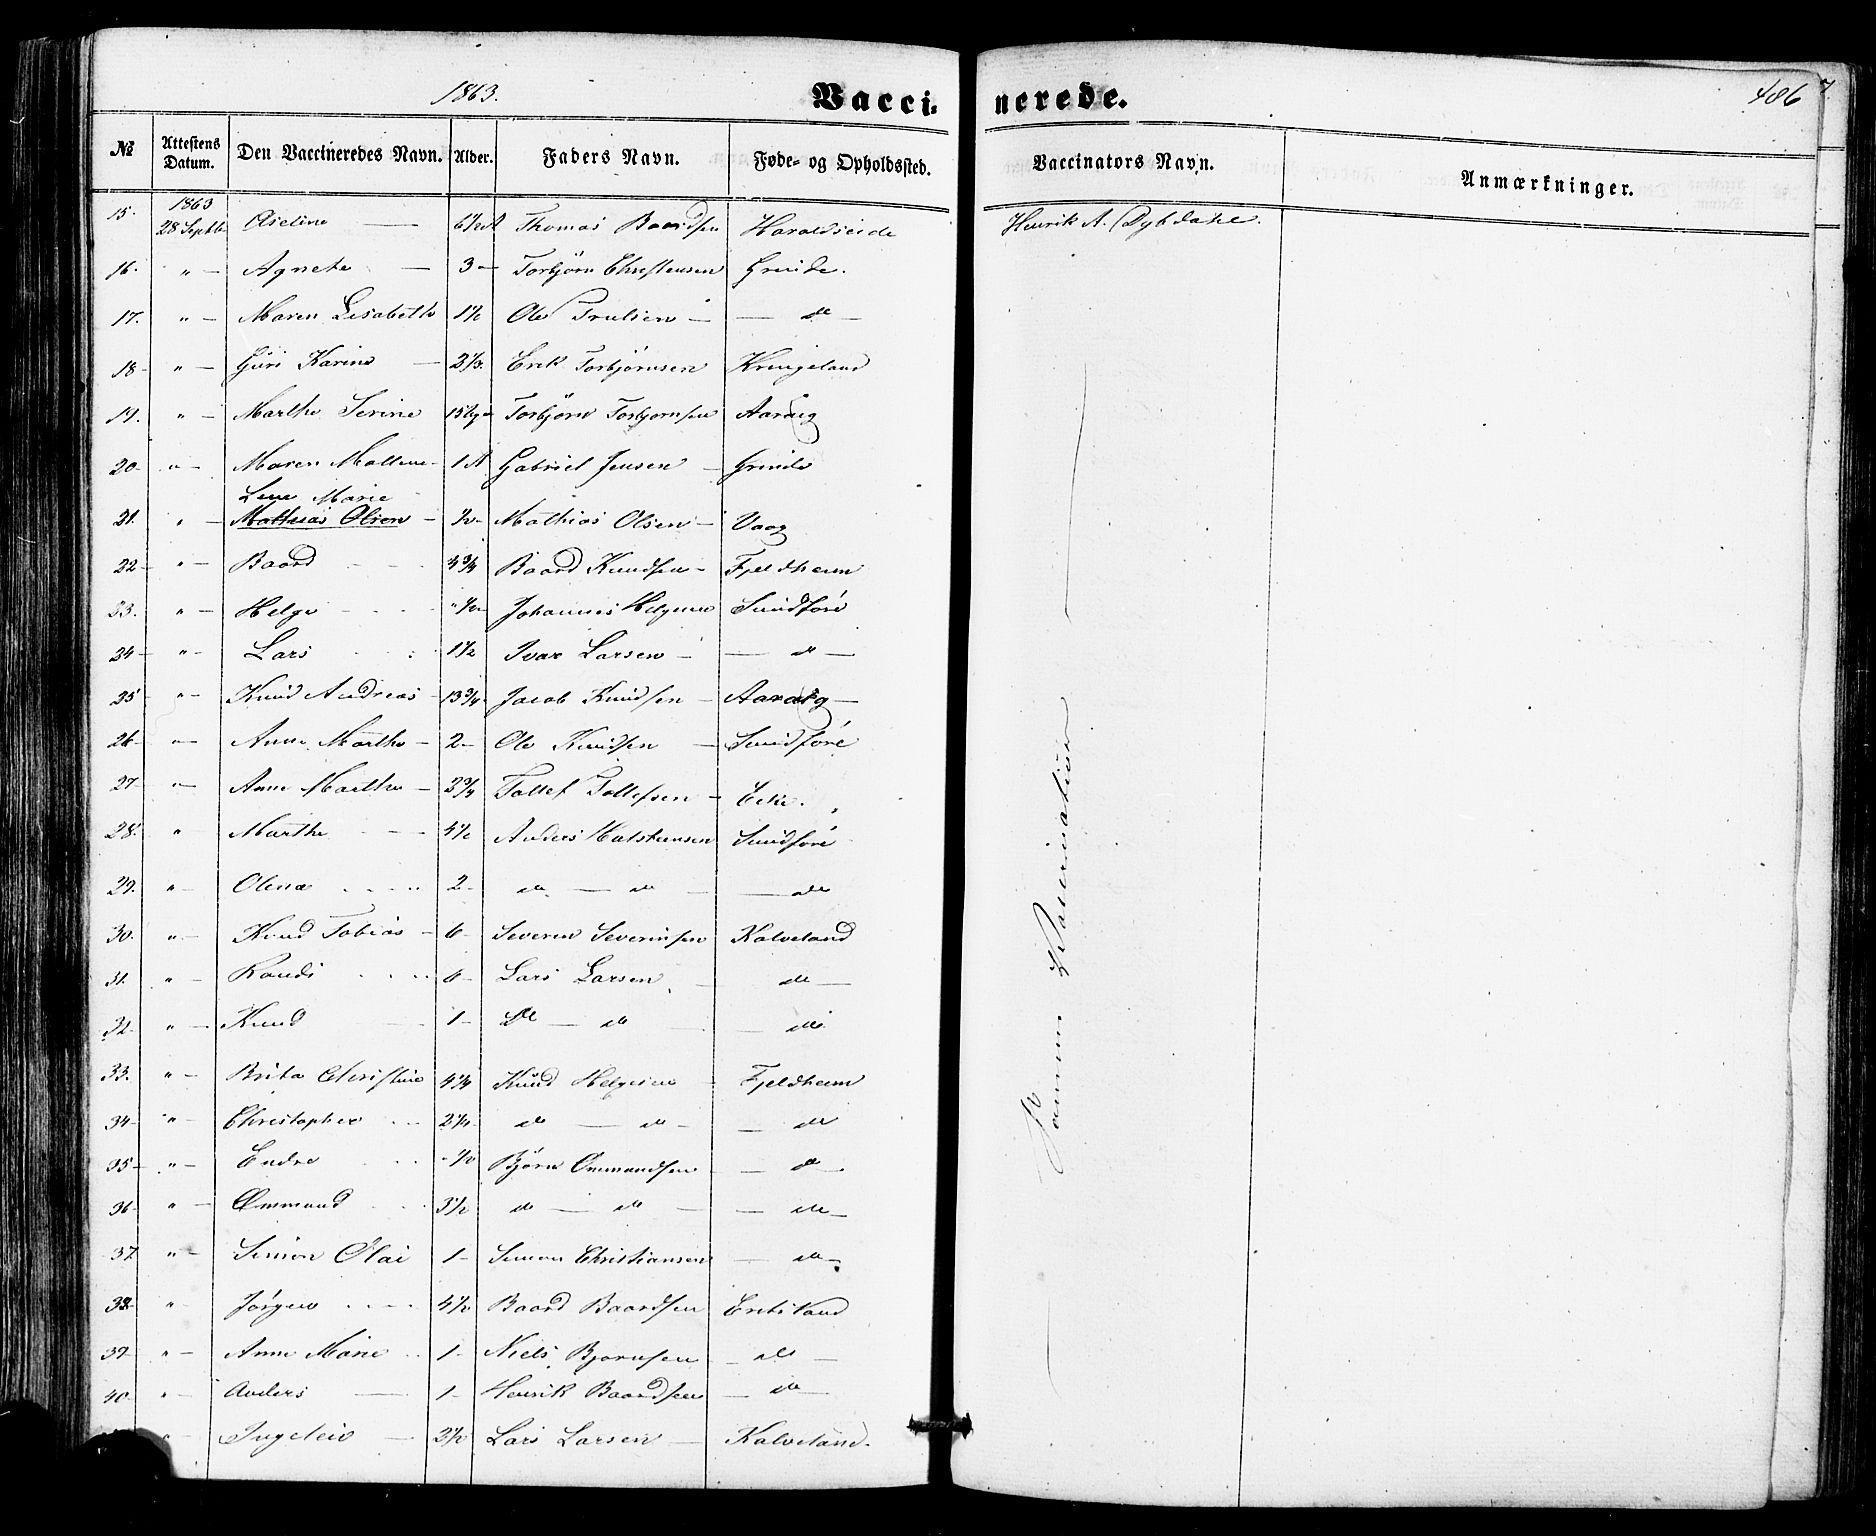 1863.
Vacci-
nerede.
406
7.
№ Attestens Datum. Den Vaccineredes Navn. Alder. Faders Navn. Føde- og Opholdssted. Vaccinators Navn. Anmærkninger.
1863
15. 28 Septbr Aseline — 6 1/2 A Thomas Baardsen Haraldseide Henrik A. Dybdahl.
16. " — Agnete — 3 — Torbjörn Christensen Grinde.
17. " — Maren Lisabeth 1 1/2 Ole Trulsen — — do —
18 — " — Guri Karine — 2 1/3. Erik Torbjörnsen Kringeland
19. " — Marthe Serine Torbjörn Torbjornsen Aarvig
20 — " — Maren Mallene — 1 A Gabriel Jensen — Grinde
Lene Marie
21. " — Mathias Olsen — 1/2 — Mathias Olsen — Vaag
22 — " — Baard — 4 3/4 Baard Knudsen — Fjeldheim
23. " — Helge - - - " 1/2 — Johannes Helgesen Sundföre
24 — " — Lars - - 1 1/2 Ivar Larsen — — do —
25 " — Knud Andreas — 13 3/4 — Jacob Knudsen — Aarvig —
26 — " — Anne Marthe — 2 — Ole Knudsen — Sundföre
27 — " — Anne Marthe — 2 3/4 Tollef Tollefsen — Eike. "
28. " Marthe — 4 1/2 Anders Halstensen Sundföre
29. " — Olena . . . . 2 — do — do — — do
30. " — Knud Tobias — 6 — Severin Severinsen Kalveland
31. " — Randi . . . . 6 — Lars Larsen — do —
32 — " — Knud 1 — Do — do — do
33. " — Brita Christine 4 1/4 Knud Helgesen — Fjeldheim
34 — " — Christopher . . . 2 1/4 do — do — — do
35 — " — Endre . . . - 1/2 Björn Ommundsen — do
36 " — Ommund . . . 3 1/2 do — do — — do —
37 " — Simon Olai 1 — Simon Christiansen — do —
38 — " — Jörgen . . . . 4 1/2 Baard Baardsen
39 — " — Anne Marie . . 1 — Niels Bjornsen — do —
40 — " — Anders — 1 — Henrik Baardsen — do —
" — Ingeleiv — 2 1/2 Lars Larsen — Kalveland.
Samme Vaccinateur